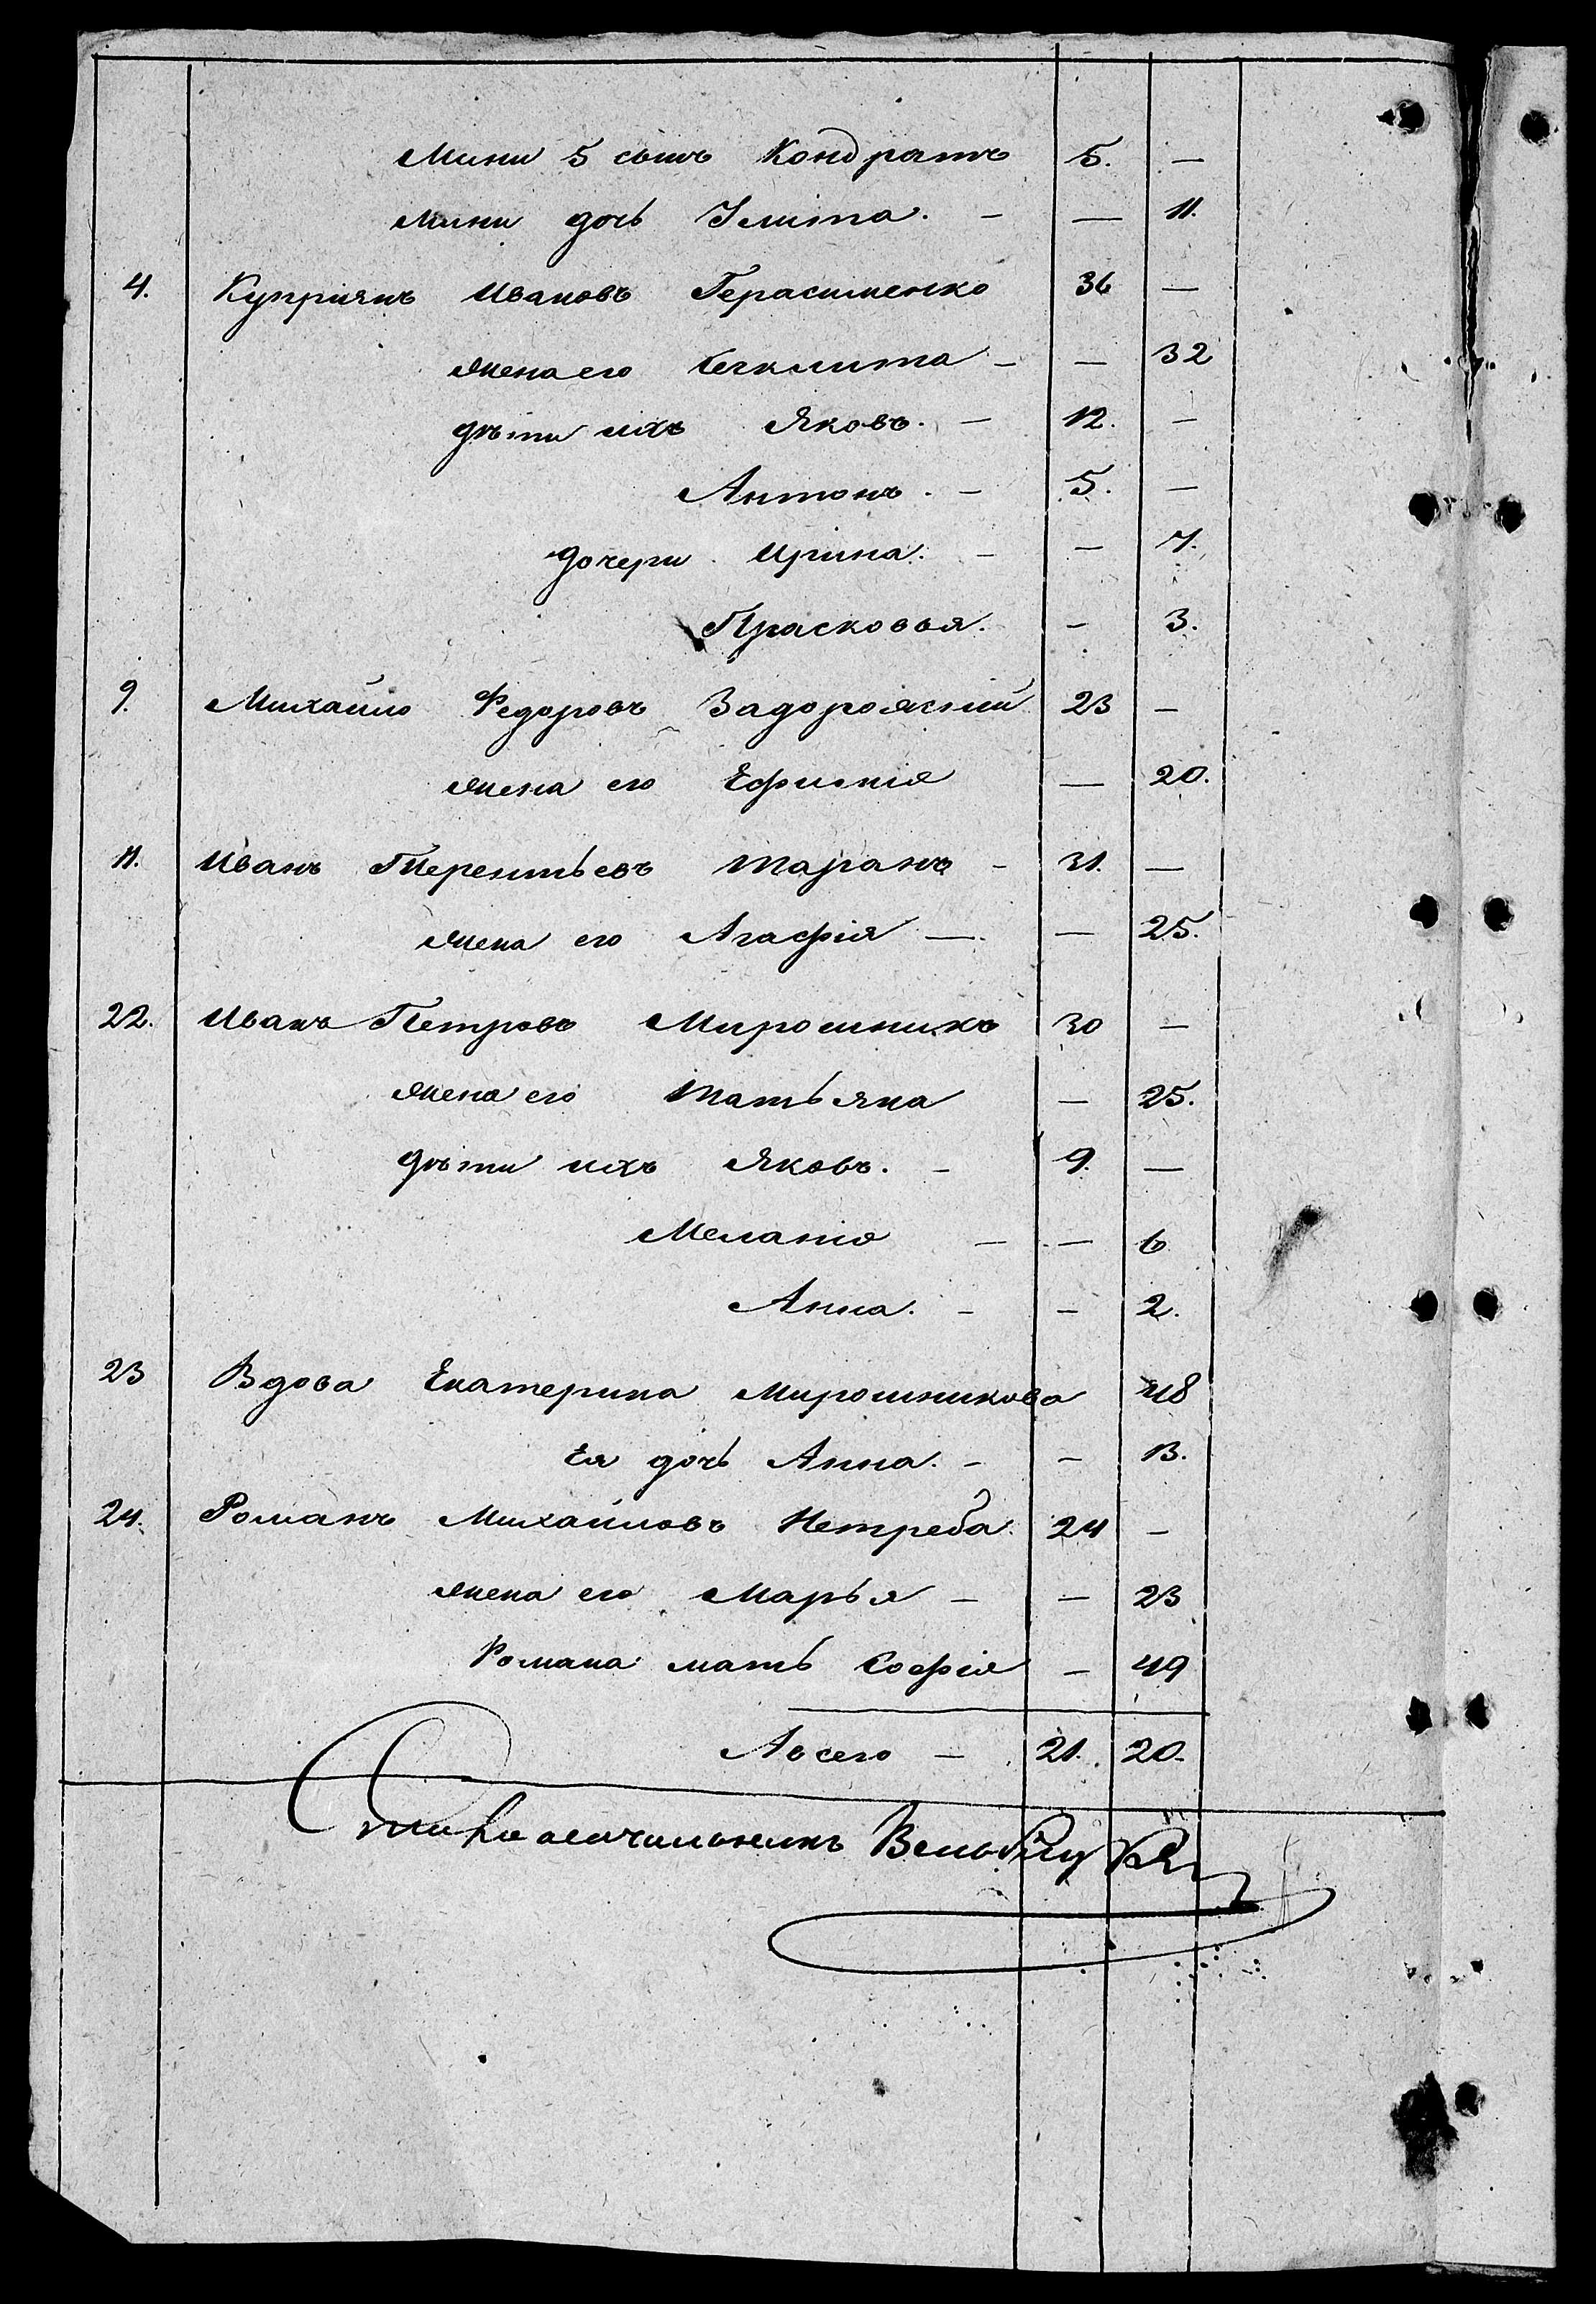 Мини 5 сынъ Кондратъ 5. —
Мини дочь Улита. — — 11.
4. Куприянъ Ивановъ Герасименко 36 —
жена его — — 32
дѣти ихъ Яковъ. — 12. —
Антонъ. — 5. —
дочери Ирина. — — 7.
Прасковья. — 3.
9. Михайло Федоровъ Задорожній 23 —
жена его Ефимія — 20.
11. Иванъ Терентьевъ Таранъ — 31. —
жена его Агафія — — 25.
22. Иванъ Петровъ Мирошникъ 30 —
жена его Татьяна — 25.
дѣти ихъ Яковъ. — 9. —
Меланія — — 6
Анна. — — 2.
23 Вдова Екатерина Мирошникова 48
Ея дочь Анна. — — 13.
24. Романъ Михайловъ Нетреба. 24 —
жена его Марья — — 23
Романа мать Софія — 49
А всего — 21. 20.